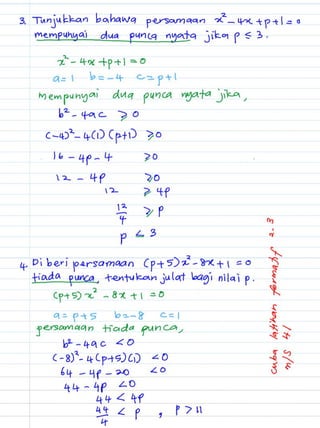 3. Tunjukkan bahawa persamaan x² - 4x + p + 1 = 0
mempunyai dua punca nyata jika p ≤ 3.
x² - 4x + p + 1 = 0
a = 1 b = -4 c = p + 1
Mempunyai dua punca nyata jika,
b² - 4ac ≥ 0
(-4)² - 4(1)(p+1) ≥ 0
16 - 4p - 4 ≥ 0
12 - 4p ≥ 0
12 ≥ 4p
12/4 ≥ p
p ≤ 3
4. Diberi persamaan (p+5)x² - 8x + 1 = 0
tiada punca, tentukan julat bagi nilai p.
(p+5)x² - 8x + 1 = 0
a = p+5 b = -8 c = 1
persamaan tiada punca,
b² - 4ac < 0
(-8)² - 4(p+5)(1) < 0
64 - 4p - 20 < 0
44 - 4p < 0
44 < 4p
44/4 < p , p > 11
cuba latihan formatif 2.3
m/s 41